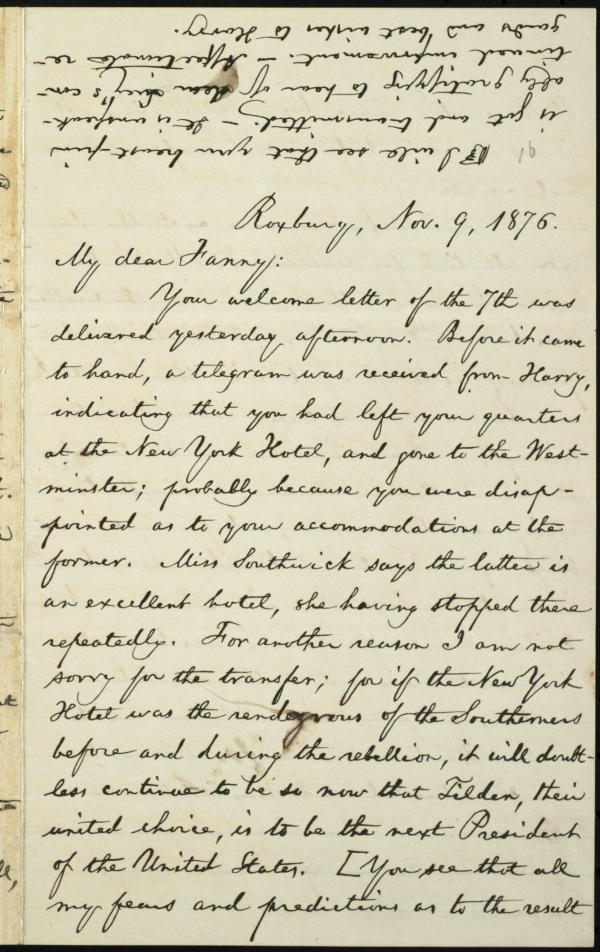 I will see that your breast-pin
is got and transmitted. — It is unspeak-
ably gratifying to hear of dear Lucy's con-
tinued improvement. — Affectionate re-
gards and best wishes to Harry.
Roxbury, Nov. 9, 1876.
My dear Fanny:
Your welcome letter of the 7th was
delivered yesterday afternoon. Before it came
to hand, a telegram was received from Harry,
indicating that you had left your quarters
at the New York Hotel, and gone to the West-
minster; probably because you were disap-
pointed as to your accommodations at the
former. Miss Southwick says the latter is
an excellent hotel, she having stopped there
repeatedly. For another reason I am not
sorry for the transfer; for if the New York
Hotel was the rendezvous of the Southerners
before and during the rebellion, it will doubt-
less continue to be so now that Tilden, their
united choice, is to be the next President
of the United States. [You see that all
my fears and predictions as to the result